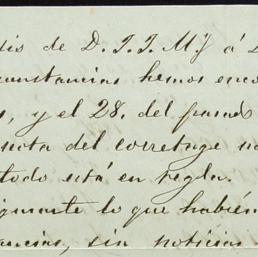 dis de D. J. J. My á D
cunstancias hemos enco
s, y el 28. del pasado
nota del corretage no
todo está en regla.
iguante lo que habién
ancias, sin noticias